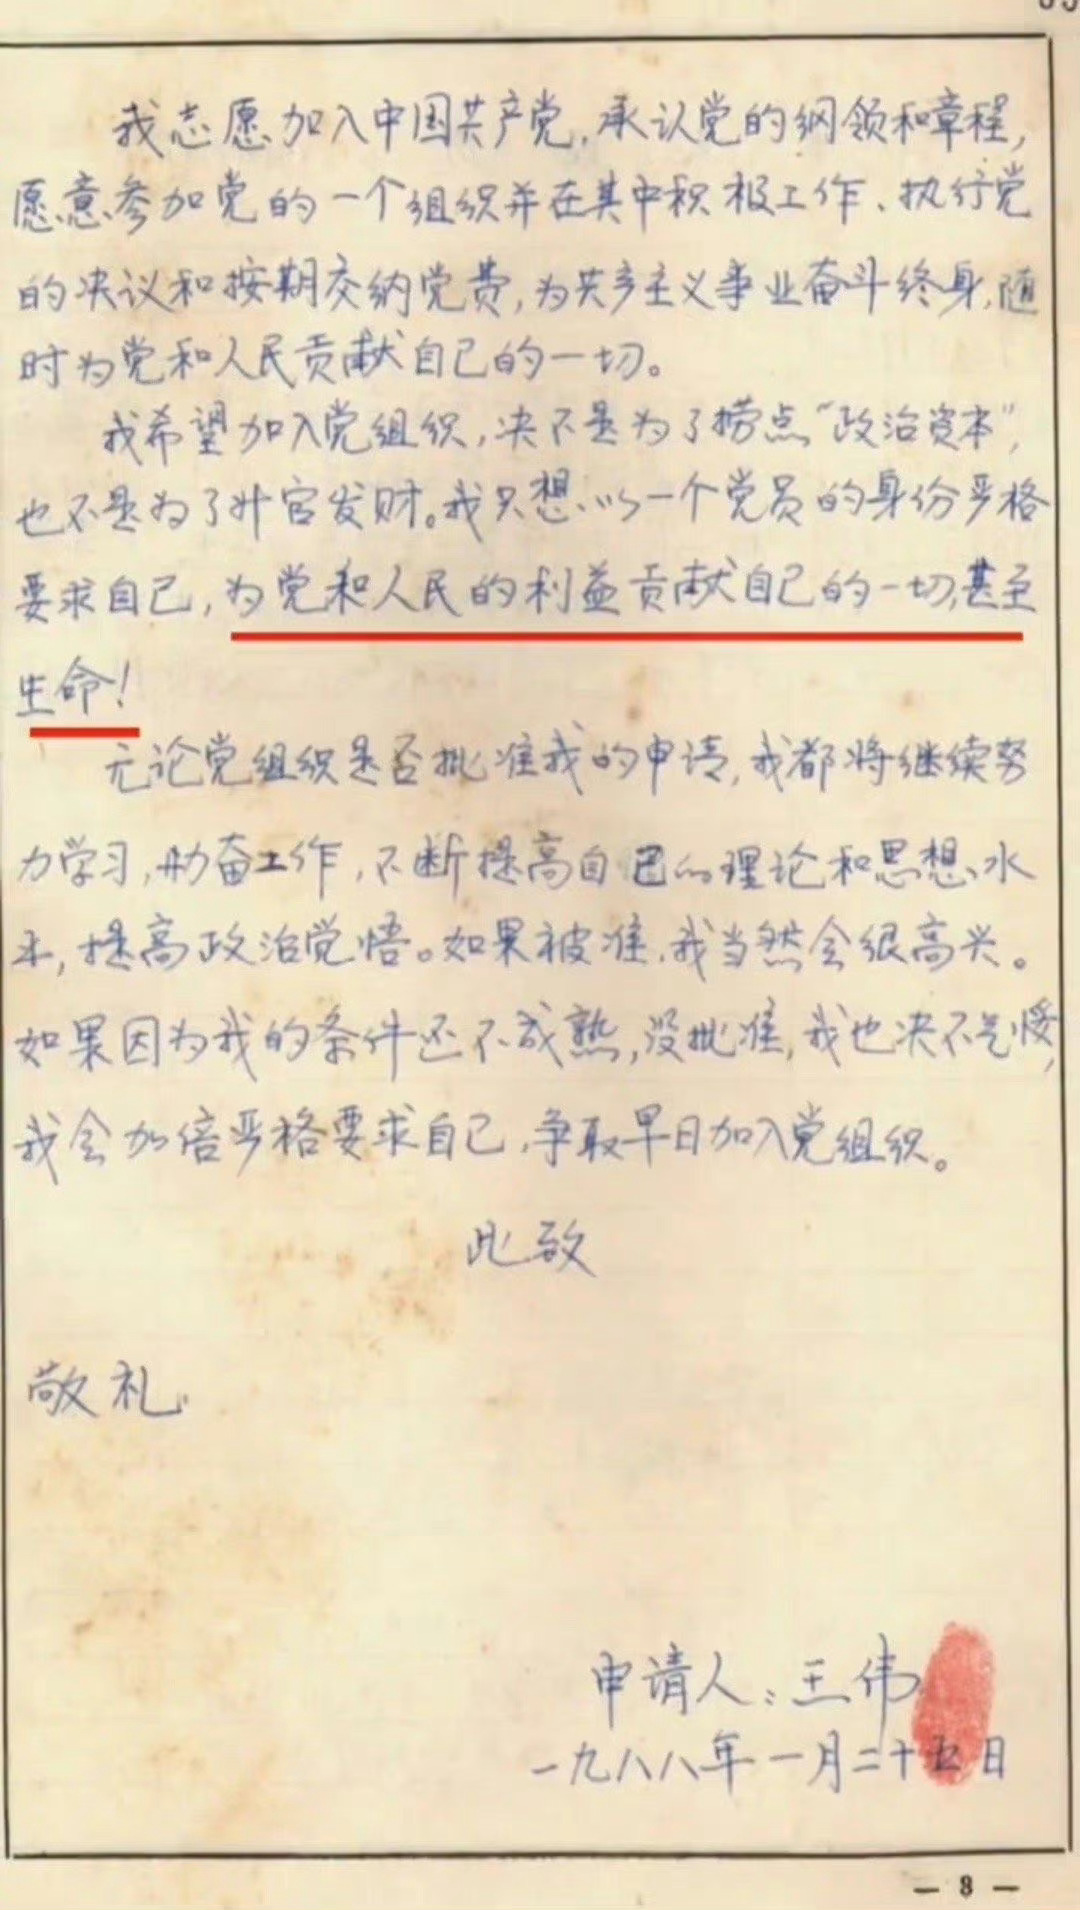 我志愿加入中国共产党，承认党的纲领和章程，
愿意参加党的一个组织并在其中积极工作、执行党
的决议和按期交纳党费，为共产主义事业奋斗终身，随
时为党和人民贡献自己的一切。
我希望加入党组织，决不是为了捞点“政治资本”，
也不是为了升官发财。我只想以一个党员的身份严格
要求自己，为党和人民的利益贡献自己的一切，甚至
生命！
无论党组织是否批准我的申请，我都将继续努
力学习，勤奋工作，不断提高自己的理论和思想水
水，提高政治觉悟。如果被准，我当然会很高兴。
如果因为我的条件还不成熟，没批准，我也决不气馁，
我会加倍严格要求自己，争取早日加入党组织。
此致
敬礼
申请人：王伟
一九八八年一月二十五日
— 8 —